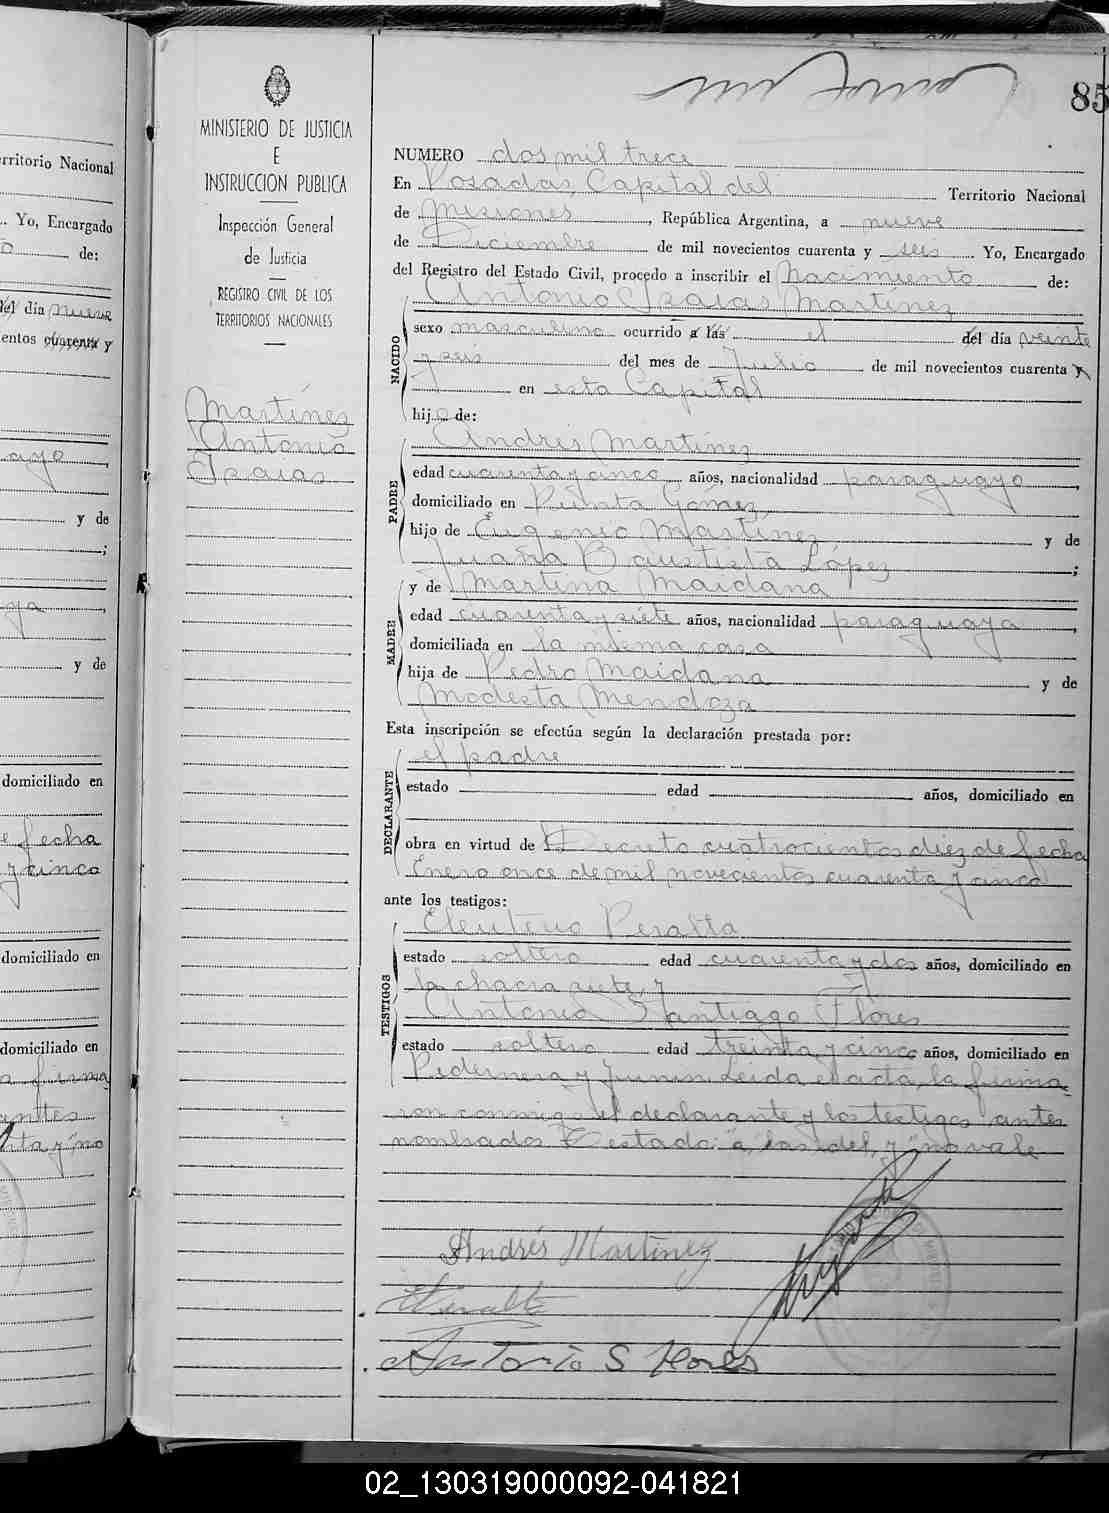 85
MINISTERIO DE JUSTICIA
E
INSTRUCCION PUBLICA
Inspección General
de Justicia
REGISTRO CIVIL DE LOS
TERRITORIOS NACIONALES
Martínez
Antonio
Isaias
NUMERO dos mil trece
En Posadas, Capital del Territorio Nacional
de Misiones, República Argentina, a nueve
de Diciembre de mil novecientos cuarenta y seis Yo, Encargado
del Registro del Estado Civil, procedo a inscribir el Nacimiento de:
NACIDO
Antonio Isaias Martínez
sexo masculino ocurrido a las el del día veinte
y seis del mes de Julio de mil novecientos cuarenta y
en esta Capital
hijo de:
PADRE
Andrés Martínez
edad cuarenta y cinco años, nacionalidad paraguayo,
domiciliado en Puinta Gómez,
hijo de Eugenio Martínez y de
Juana Bautista López;
MADRE
y de Martina Maidana
edad cuarenta y siete años, nacionalidad paraguaya,
domiciliada en la misma casa
hija de Pedro Maidana y de
Modesta Mendoza
Esta inscripción se efectúa según la declaración prestada por:
DECLARANTE
el padre
estado edad años, domiciliado en
obra en virtud de Decreto cuatrocientos diez de fecha
Enero once de mil novecientos cuarenta y cinco
ante los testigos:
TESTIGOS
Eleuterio Peralta
estado soltero edad cuarenta y dos años, domiciliado en
la chacra siete, y
Antonio Santiago Flores
estado soltero edad treinta y cinco años, domiciliado en
Pedernera y Junin. Leida el acta, la firma
ron conmigo el declarante y los testigos antes
nombrados. Testado: "a, las, del, y" no vale
Andrés Martínez
EPeralta
Antonio S Flores
erritorio Nacional
Yo, Encargado
de:
del día nueve
entos cuarenta y
y de
;
y de
domiciliado en
fecha
y cinco
domiciliado en
domiciliado en
firma
antes
no
02_130319000092-041821